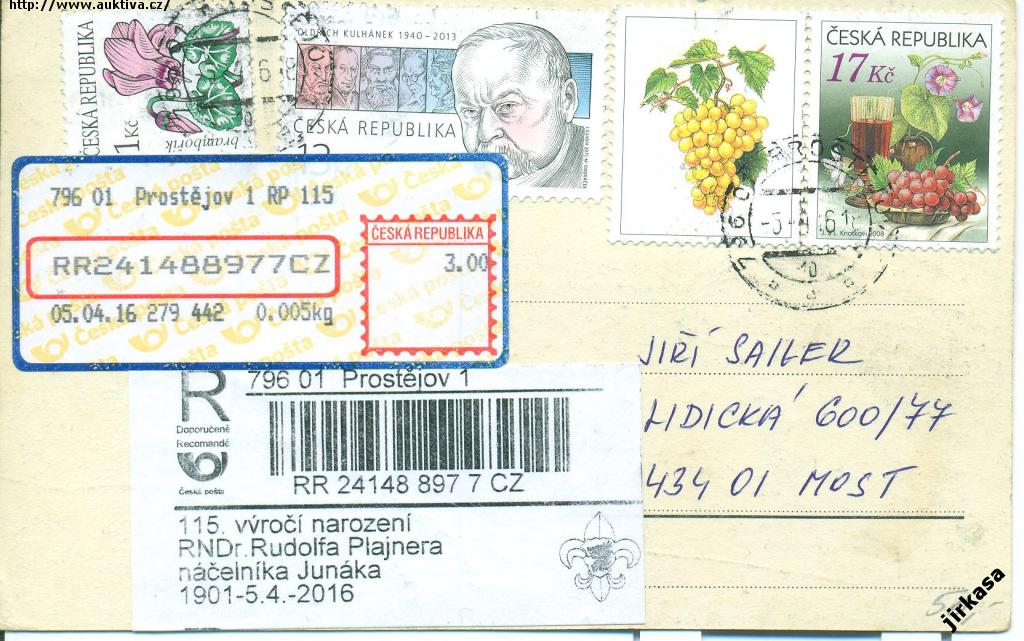 http://www.auktiva.cz/
ČESKÁ REPUBLIKA
1 Kč
brambořík
OLDŘICH KULHÁNEK 1940 – 2013
ČESKÁ REPUBLIKA
ČESKÁ REPUBLIKA
17 Kč
2008
796 01 Prostějov 1 RP 115
RR241488977CZ
05.04.16 279 442 0.005kg
ČESKÁ REPUBLIKA
3.00
R
Doporučeně
Recomandé
Česká pošta
796 01 Prostějov 1
RR 24148 897 7 CZ
115. výročí narození
RNDr.Rudolfa Plajnera
náčelníka Junáka
1901-5.4.-2016
JIŘÍ SAILER
LIDICKÁ 600/77
434 01 MOST
jirkasa